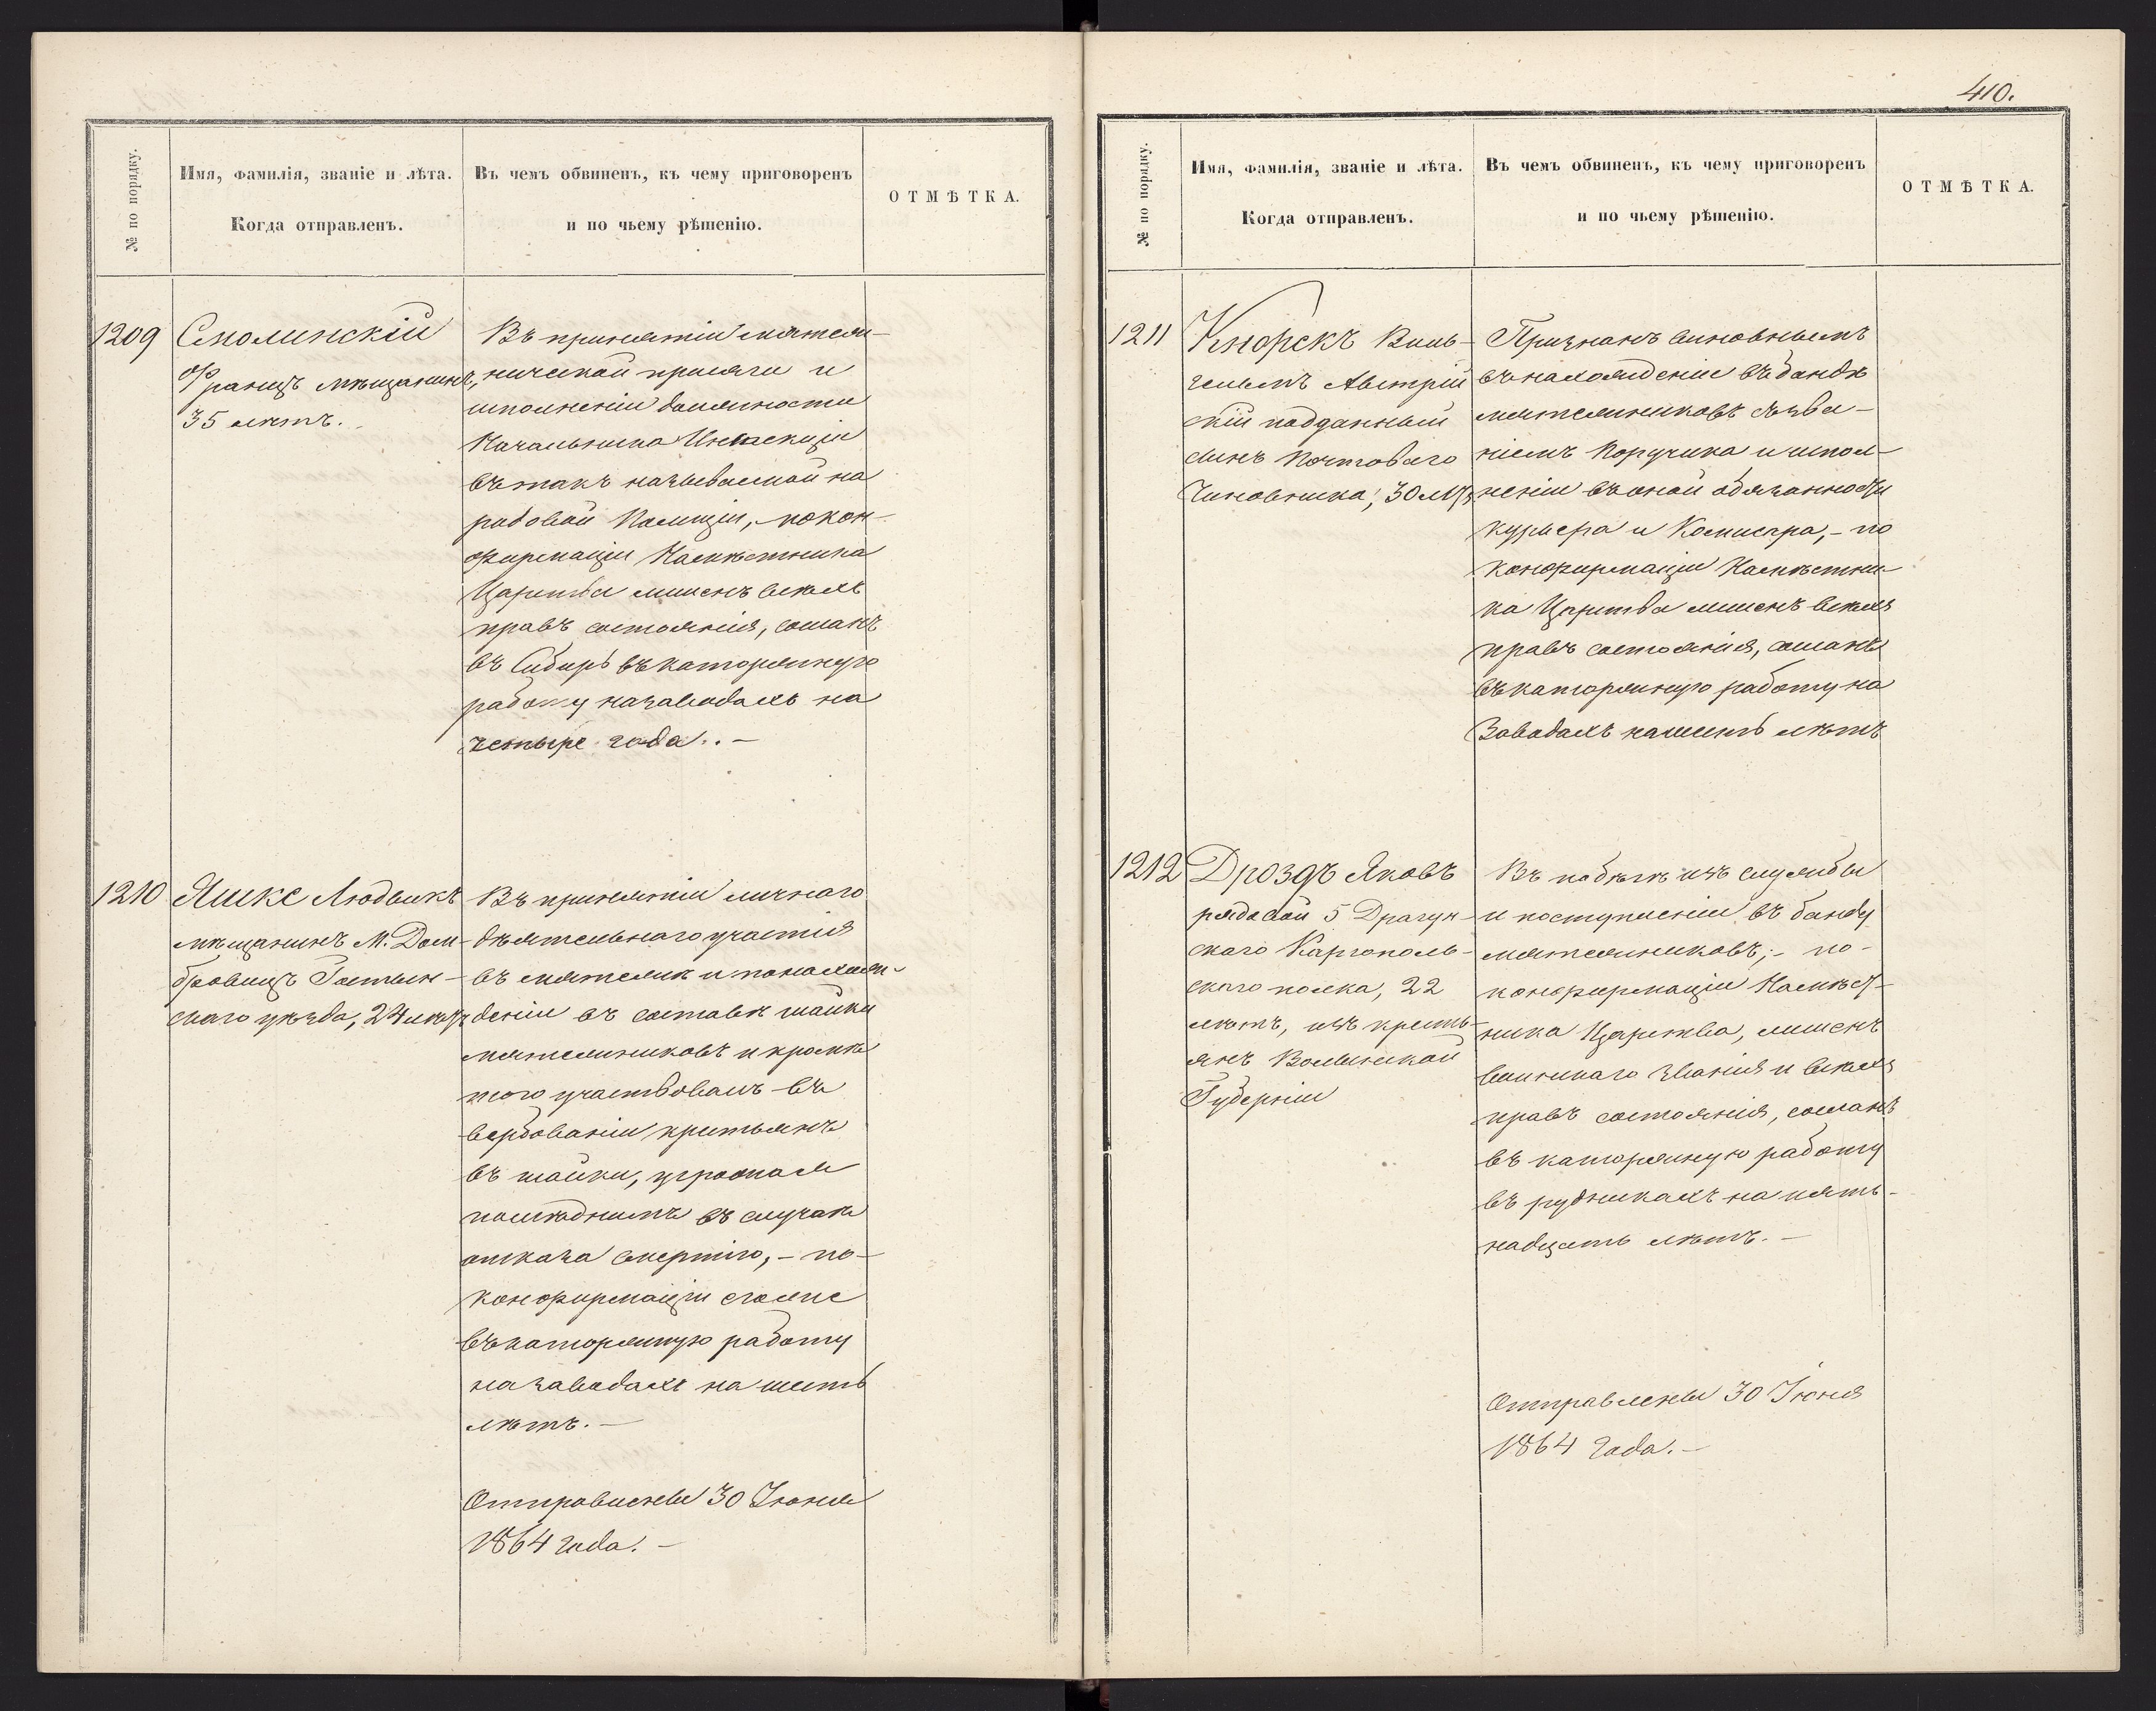 № по порядку.
Имя, фамилія, званіе и лѣта.
Когда отправленъ.
Въ чемъ обвиненъ, къ чему приговоренъ
и по чьему рѣшенію.
ОТМѢТКА.
1209
Смолинскій
Францъ мѣщанинъ,
35 лѣтъ.
Въ принятіи мятеж-
нической присяги и
исполненіи должности
Начальника Инспекціи
въ такъ называемой на
родовой Полиціи, по кон-
фирмаціи Намѣстника
Царства лишенъ всѣхъ
правъ состоянія, сосланъ
въ Сибирь въ каторжную
работу на заводахъ на
четыре года. –
1210
Яшке Людвикъ
мѣщанинъ М. Дом-
бровицъ Гостын-
скаго уѣзда, 24 лѣтъ
Въ принятіи личнаго
дѣятельнаго участія
въ мятежѣ и по нахож-
деніи въ составѣ шайки
мятежниковъ и кромѣ
того участвовалъ въ
вербованіи крестьянъ
въ шайки, угрожая
послѣднимъ въ случаѣ
отказа смертію, – по
конфирмаціи
въ каторжную работу
на заводахъ на шесть
лѣтъ. –
Отправлены 30 Іюня
1864 года. –
410.
№ по порядку.
Имя, фамилія, званіе и лѣта.
Когда отправленъ.
Въ чемъ обвиненъ, къ чему приговоренъ
и по чьему рѣшенію.
ОТМѢТКА.
1211
Кнорекъ Виль-
гельмъ Австрій
скій подданный
сынъ Почтоваго
Чиновника, 30 лѣтъ
Признанъ виновнымъ
въ нахожденіи въ бандѣ
мятежниковъ съ зва-
ніемъ Поручика и испол-
неніи въ оной обязанности
курьера и Комисара, – по
конфирмаціи Намѣстни-
ка Царства лишенъ всѣхъ
правъ состоянія, сосланъ
въ каторжную работу на
Заводахъ на шесть лѣтъ
1212
Дроздъ Яковъ
рядовой 5 Драгун-
скаго Каргополь-
скаго полка, 22
лѣтъ, изъ кресть-
янъ Волынской
Губерніи
Въ побѣгѣ изъ службы
и поступленіи въ банду
мятежниковъ; – по-
конфирмаціи Намѣст-
ника Царства, лишенъ
воинскаго званія и всѣхъ
правъ состоянія, сосланъ
въ каторжную работу
въ рудникахъ на пять-
надцать лѣтъ. –
Отправлены 30 Іюня
1864 года. –